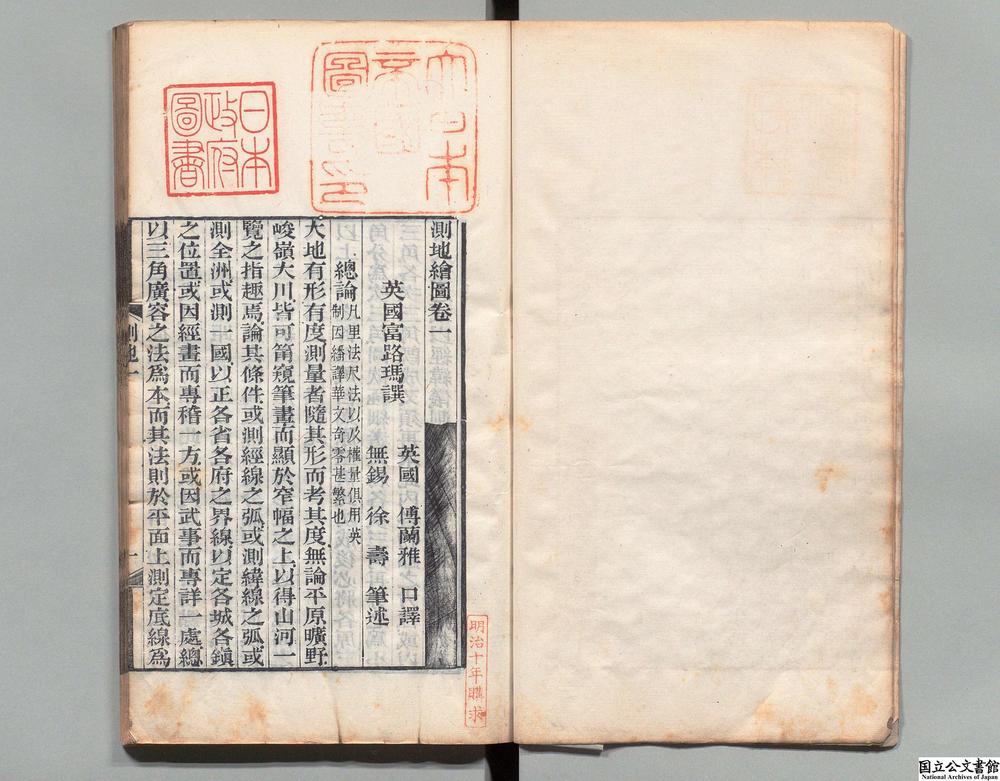 大日本
帝國
圖書印
日本
政府
圖書
測地繪圖卷一
英國富路瑪譔
英國 傅蘭雅 口譯
無錫 徐壽 筆述
總論凡里法尺法以及權量俱用英
制因繙譯華文奇零甚繁也
大地有形有度測量者隨其形而考其度無論平原曠野
峻嶺大川皆可筩窺筆畫而顯於窄幅之上以得山河一
覽之指趣焉論其條件或測經線之弧或測緯線之弧或
測全洲或測一國以正各省各府之界線以定各城各鎮
之位置或因經畫而專稽一方或因武事而專詳一處總
以三角廣容之法爲本而其法則於平面上測定底線爲
測地一
一
明治十年購求
国立公文書館
National Archives of Japan